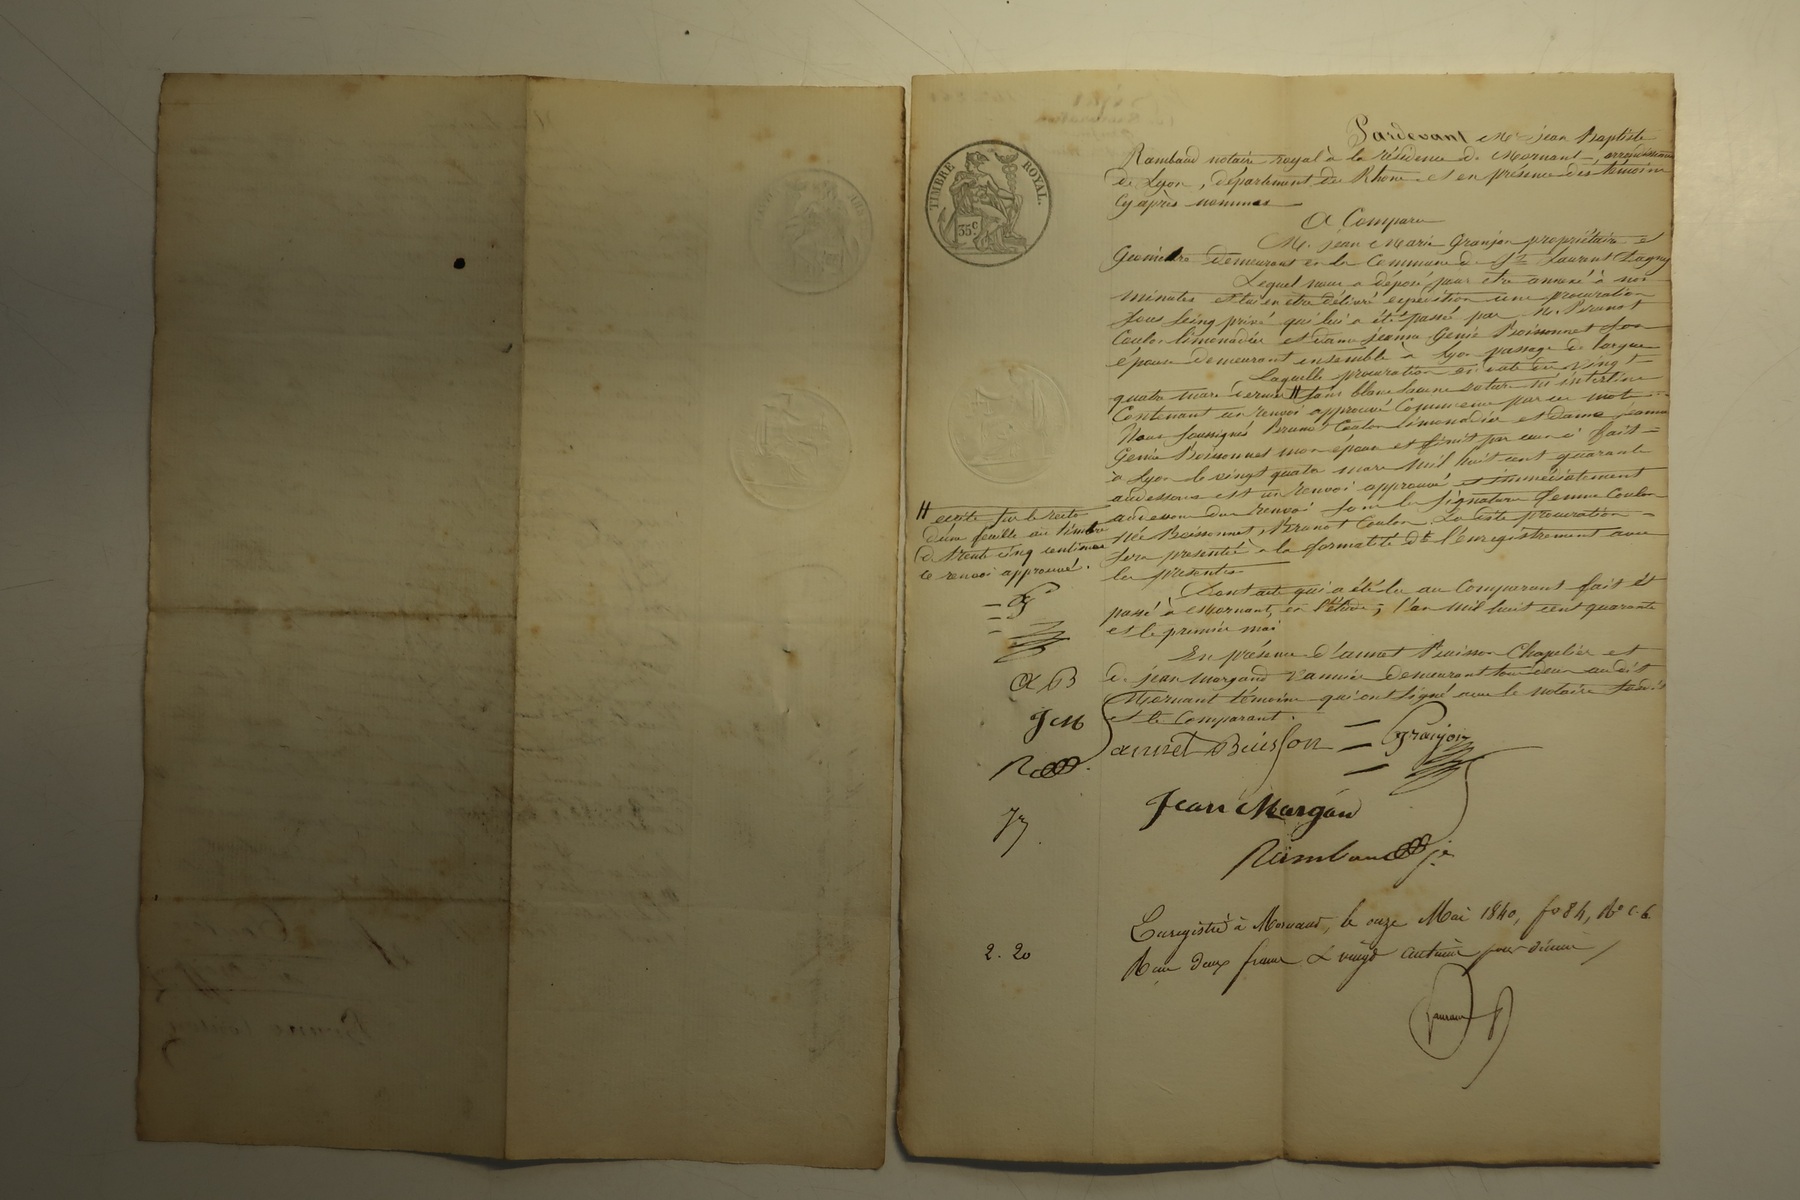 TIMBRE ROYAL.
35 c
Pardevant Me jean Baptiste
Rambaud notaire royal à la résidence de Mornant, arrondissement
de Lyon, département du Rhône et en présence des témoins
cy après nommés
A Comparu
M. jean Marie Granjon propriétaire et
Géomètre demeurant en la Commune de St Laurent d'agny
Lequel nous a déposé pour être annexé à nos
minutes et lui en être délivré expédition une procuration
sous seing privé qui lui a été passé par M. Brunot
Coulon limonadier et dame jeanne Genie Boissonnet son
épouse demeurant ensemble à Lyon passage de l'argue
Laquelle procuration en date du vingt
quatre mars dernier // sans blanc lacune rature ni interligne
Contenant un renvoi approuvé Commence par ces mots =
Nous soussignés Brunot Coulon limonadier et dame jeanne
Genie Boissonnet mon épouse et finit par ceux ci fait =
à Lyon le vingt quatre mars mil huit cent quarante
audessous est un renvoi approuvé et immédiatement
audessous du renvoi sont les signatures femme Coulon
née Boissonnet, Brunot Coulon. La dite procuration =
sera presentée à la formalité de l'enregistrement avec
les presentes
// ecrite sur le recto
d'une feuille au timbre
de trente cinq centimes
ce renvoi approuvé.
Dont acte qui a été lu au Comparant fait et
passé à Mornant, en l'étude, l'an mil huit cent quarante
et le premier mai
En présence d'annet Buisson Chapelier et
de jean morgand vannier demeurant tous deux audit
Mornant témoins qui ont signé avec le notaire
et le Comparant.
G
A B
J M
R
annet Buisson = Granjon
Jean Morgan
Rambaud je
Enregistré à Mornant, le onze Mai 1840, fo 84, Ro c. 6
Reçu deux francs & vingt centimes pour décime
2. 20